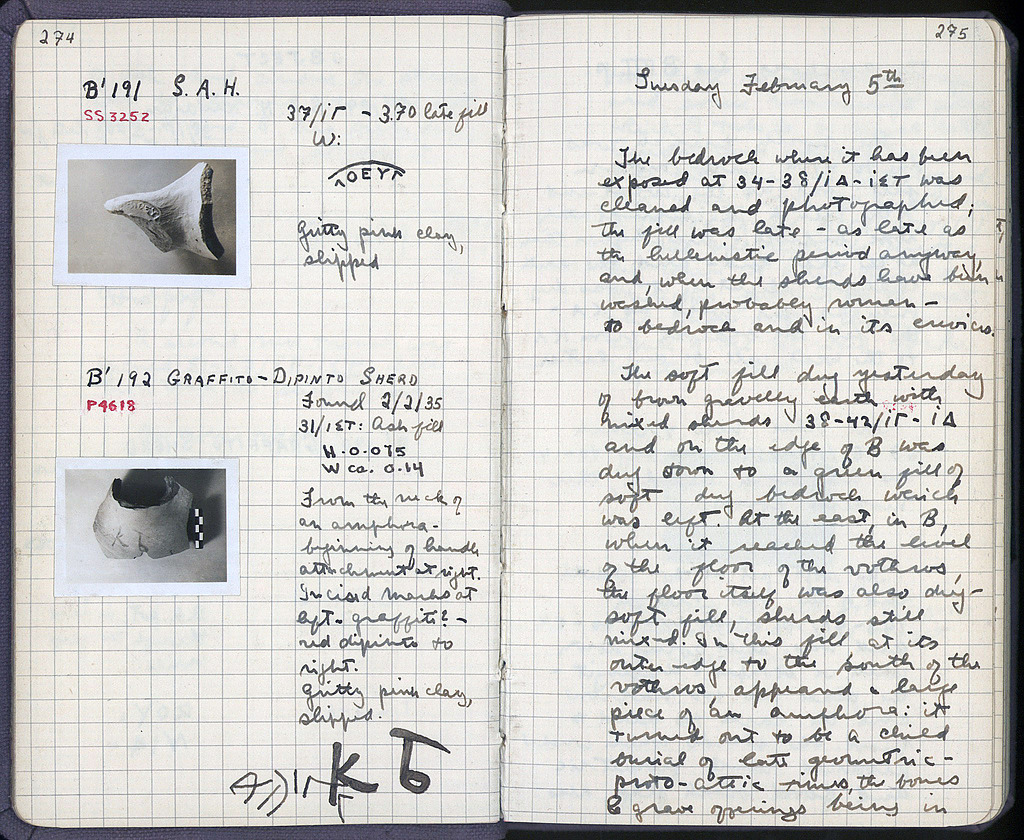 274
B' 191 S. A. H.
SS 3252
37/ΙΓ - 3.70 late fill
W:
ΛΟΕΥΓ
Gritty pink clay,
slipped
B' 192 GRAFFITO-DIPINTO SHERD
P4618
Found 2/2/35
31/ΙΣΤ: Ash fill
H. 0.075
W ca. 0.14
From the neck of
an amphora -
beginning of handle
attachment at right.
Incised marks at
left - graffiti? -
red dipinto to
right.
Gritty pink clay,
slipped.
275
Tuesday February 5th
The bedrock where it has been
exposed at 34-38/ΙΔ-ΙΣΤ was
cleaned and photographed;
the fill was late - as late as
the hellenistic period anyway,
and, when the sherds have been
washed, probably roman -
to bedrock and in its crevices.
The soft fill dug yesterday
of brown gravelly earth with
mixed sherds 38-42/ΙΓ-ΙΔ
and on the edge of B was
dug down to a green fill of
soft dug bedrock which
was left. At the east, in B,
when it reached the level
of the floor of the vothros,
the floor itself was also dug -
soft fill, sherds still
mixed. In this fill at its
outer edge to the south of the
vothros, appeared a large
piece of an amphora: it
turned out to be a child
burial of late geometric -
proto-attic times, the bones
& grave offerings being in